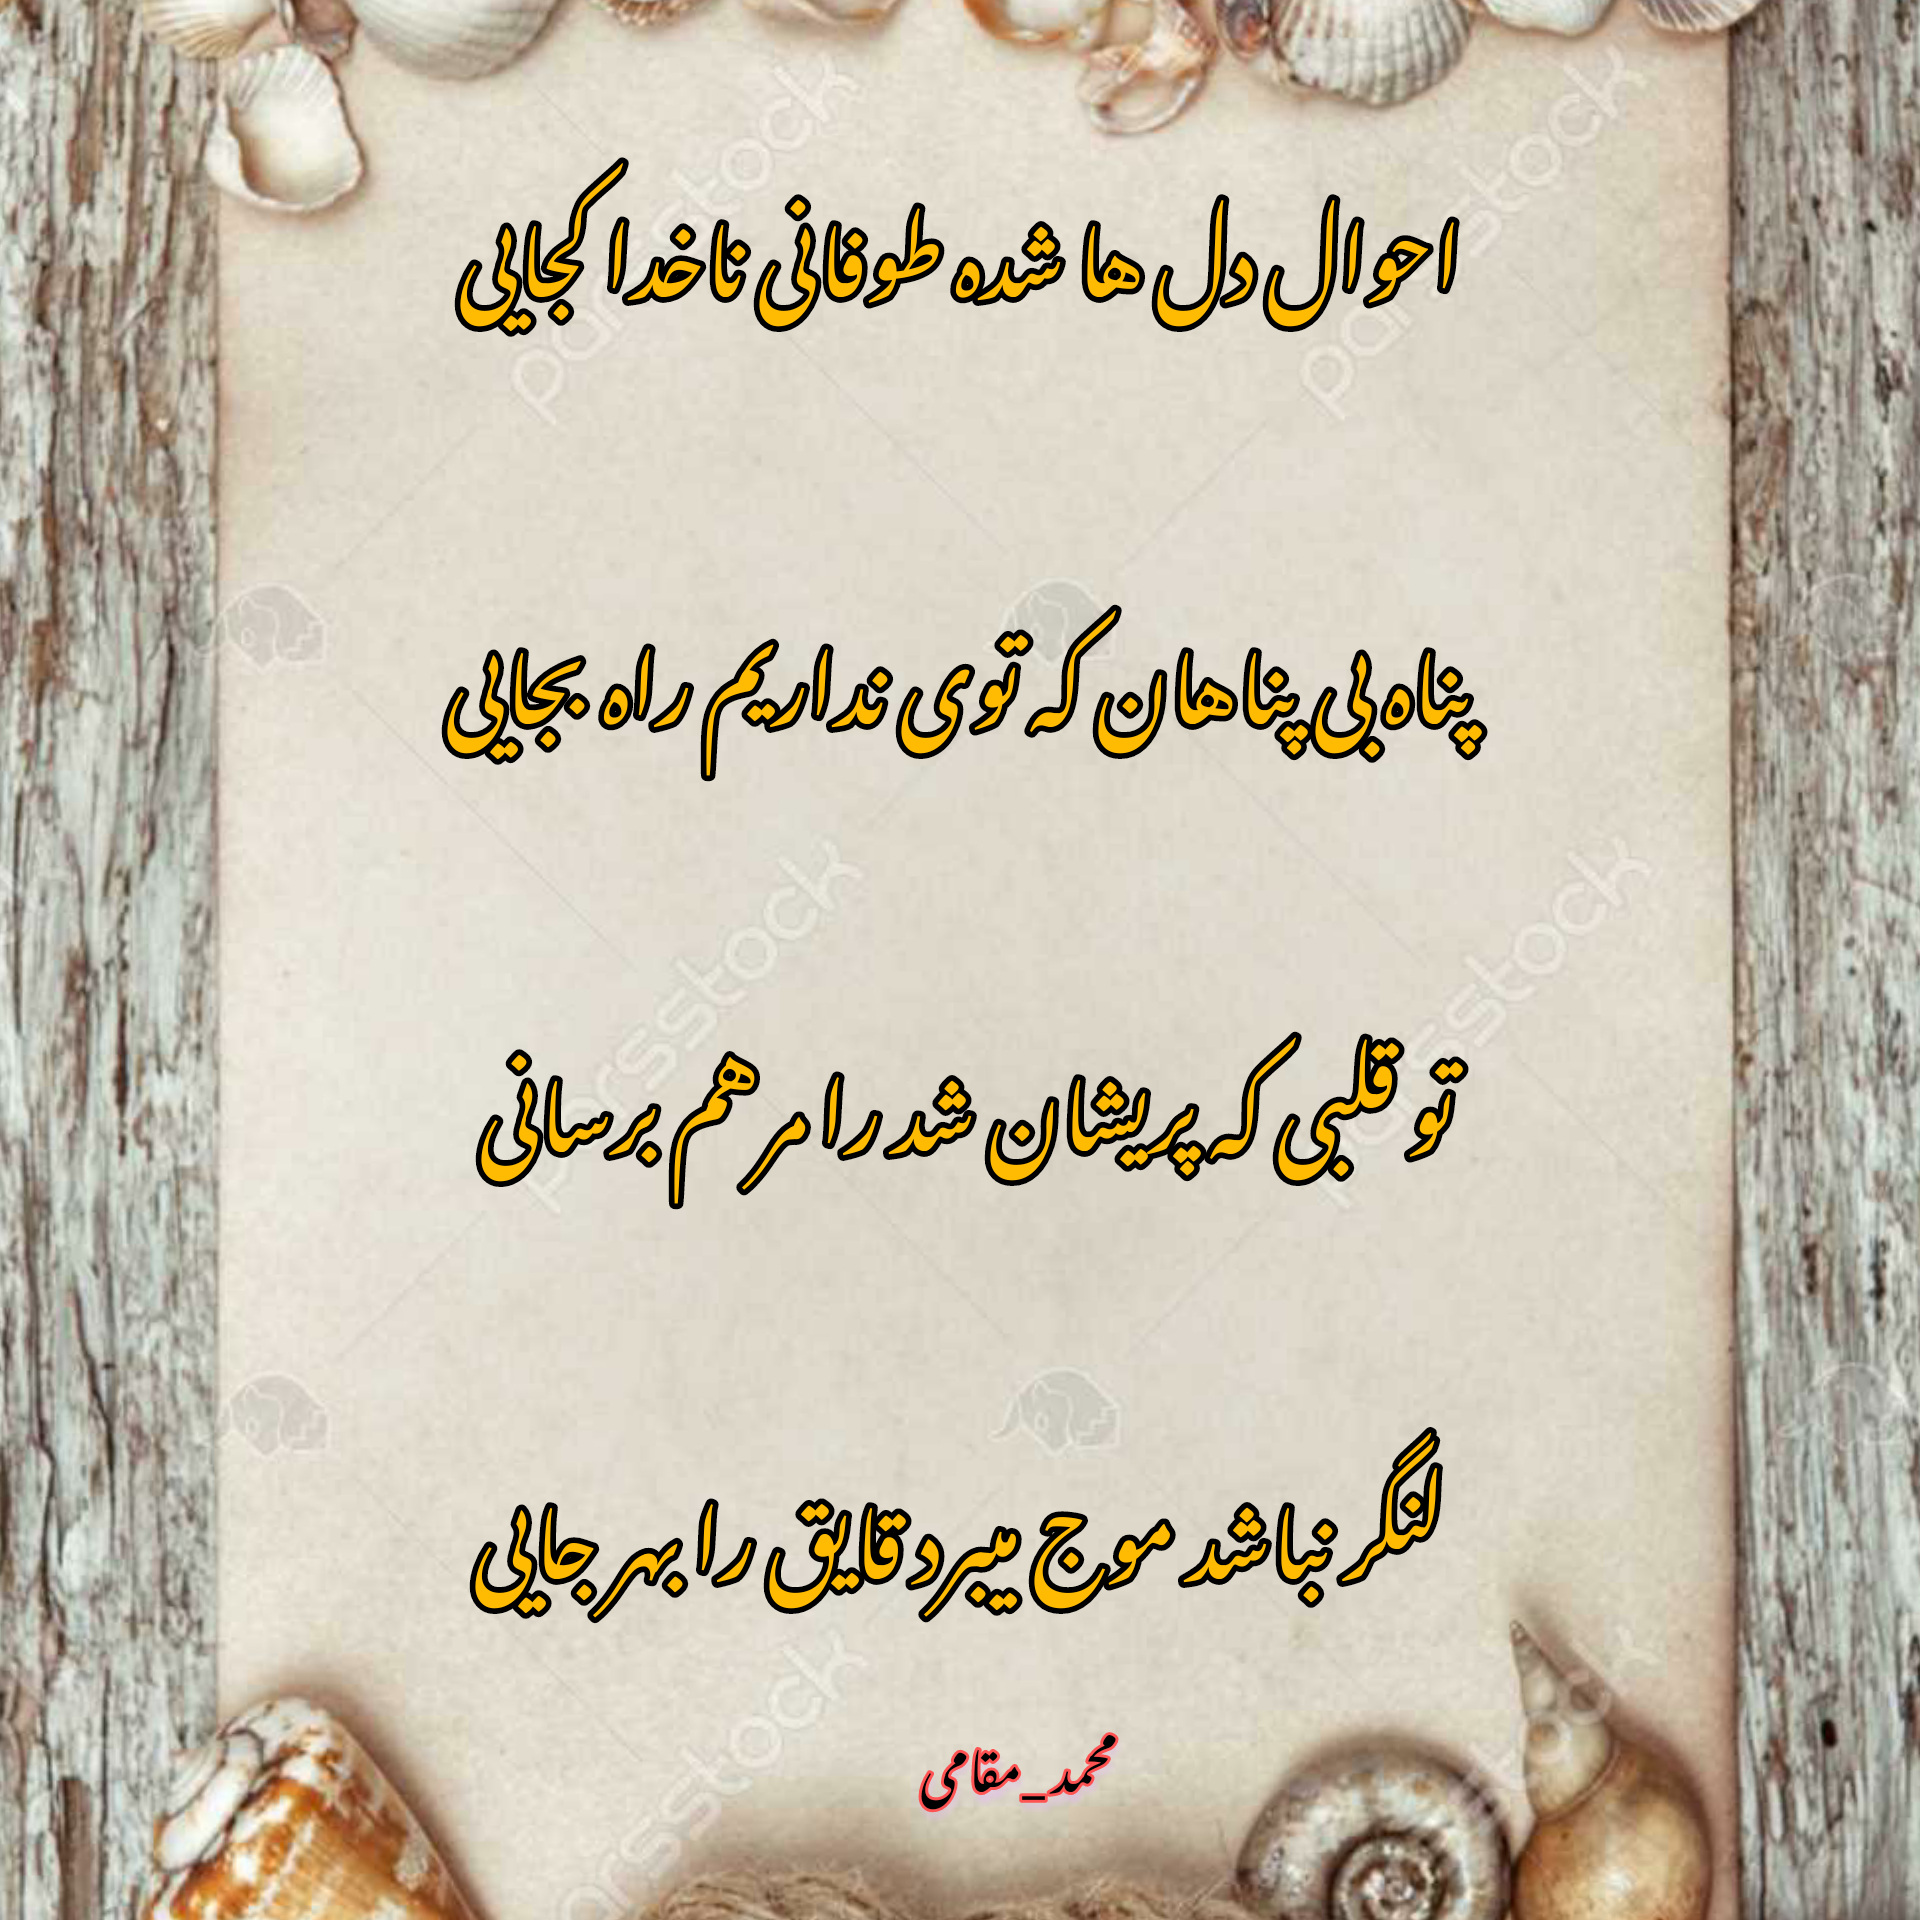 احوال دل ها شده طوفانی ناخدا کجایی
پناه بی پناهان که توی نداریم راه بجایی
تو قلبی که پریشان شد را مرهم برسانی
لنگر نباشد موج میبرد قایق را بهر جایی
محمد_مقامی
parsstock